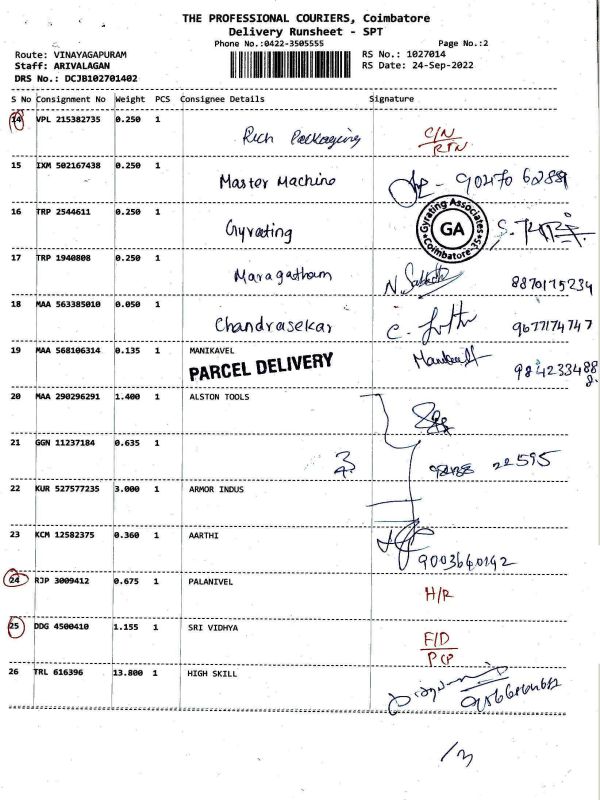 THE PROFESSIONAL COURIERS, Coimbatore
Delivery Runsheet - SPT
Phone No.:0422-3505555 Page No.:2
Route: VINAYAGAPURAM RS No.: 1027014
Staff: ARIVALAGAN RS Date: 24-Sep-2022
DRS No.: DCJB102701402
S No Consignment No Weight PCS Consignee Details Signature
14 VPL 215382735 0.250 1 Rich Packaging C/N
RTN
15 IXM 502167438 0.250 1 Master Machine 90470 62889
16 TRP 2544611 0.250 1 Gyrating Gyrating Associates GA Coimbatore-35
17 TRP 1940808 0.250 1 Maragatham 8870175234
18 MAA 563385010 0.050 1 Chandrasekar 9677174747
19 MAA 568106314 0.135 1 MANIKAVEL
PARCEL DELIVERY
20 MAA 290296291 1.400 1 ALSTON TOOLS
21 GGN 11237184 0.635 1
22595
22 KUR 527577235 3.000 1 ARMOR INDUS
23 KCM 12582375 0.360 1 AARTHI
24 RJP 3009412 0.675 1 PALANIVEL H/R
25 DDG 4500410 1.155 1 SRI VIDHYA F/D
PCP
26 TRL 616396 13.800 1 HIGH SKILL
/3